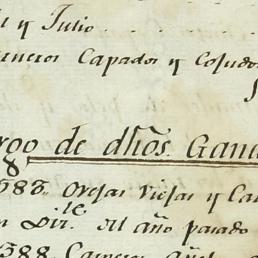 y Julio
Carneros Capados y Cojudos
de dhõs. Gana
8
583 Ovejas Viejas y Ca
Dir.le del año pasado
388 Carneros